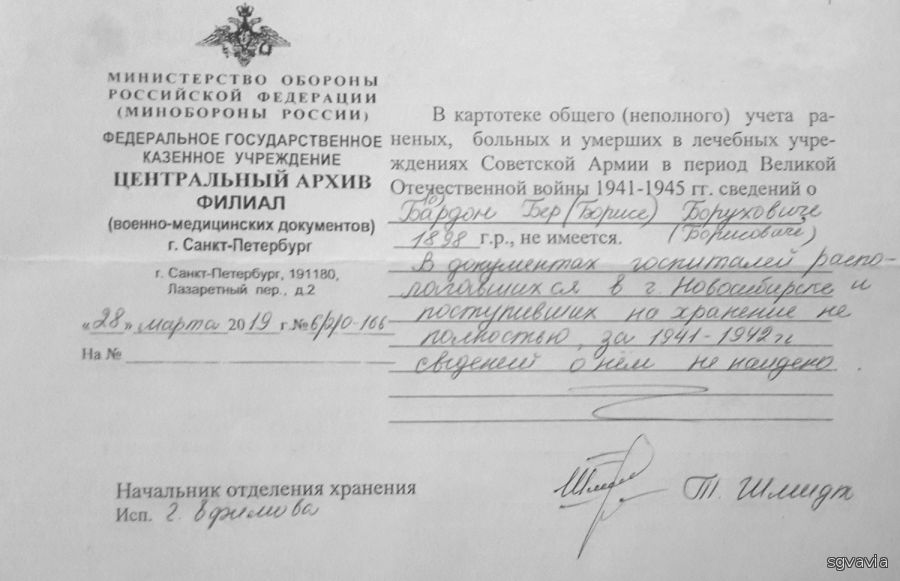 МИНИСТЕРСТВО ОБОРОНЫ
РОССИЙСКОЙ ФЕДЕРАЦИИ
(МИНОБОРОНЫ РОССИИ)
ФЕДЕРАЛЬНОЕ ГОСУДАРСТВЕННОЕ
КАЗЕННОЕ УЧРЕЖДЕНИЕ
ЦЕНТРАЛЬНЫЙ АРХИВ
ФИЛИАЛ
(военно-медицинских документов)
г. Санкт-Петербург
г. Санкт-Петербург, 191180,
Лазаретный пер., д.2
«28» марта 2019 г.№ 6/р/о-166
На №
В картотеке общего (неполного) учета ра-
неных, больных и умерших в лечебных учре-
ждениях Советской Армии в период Великой
Отечественной войны 1941-1945 гг. сведений о
(о)
Бардон Бер (Борисе) Боруховиче
1898 г.р., не имеется. (Борисовиче)
В документах госпиталей распо-
логавшихся в г. Новосибирске и
поступивших на хранение не
полностью, за 1941-1942 гг
сведений о нем не найдено.
Начальник отделения хранения
Исп. Г. Ефимова
Т. Шмидт
sgvavia